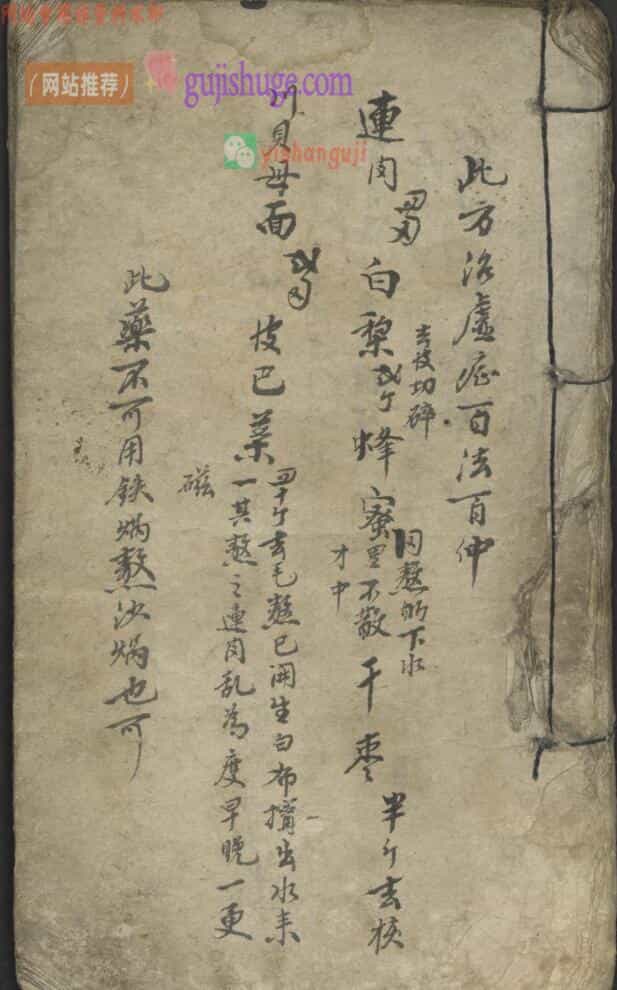 此方治虛症百法百仲
連肉
白梨 去皮切碎
蜂蜜 用熬的下水里不散才中
干枣 半斤去核
川貝母面
皮巴菜 四十斤去毛熬已開生白布擠出水来
一其熬之連肉乱為度早晚一更
磁
此藥不可用鉄焗熬沙焗也可
(网站推荐)
gujishuge.com
yishanguji